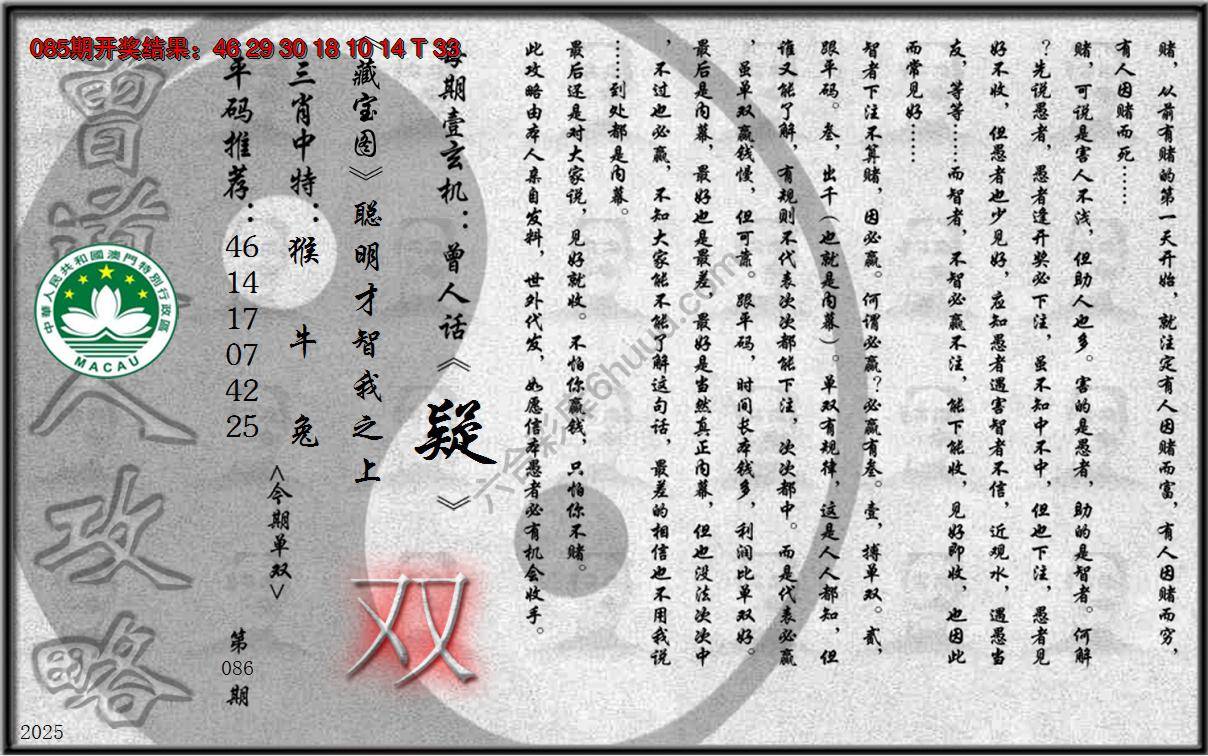 085期开奖结果：46 29 30 18 10 14 T 33
赌，从前有赌的第一天开始，就注定有人因赌而富，有人因赌而穷，
有人因赌而死……
赌，可说是害人不浅，但助人也多。害的是愚者，助的是智者。何解
？先说愚者，愚者逢开奖必下注，虽不知中不中，但也下注，愚者见
好不收，但愚者也少见好，应知愚者遇害智者不信，近观水，遇愚当
友，等等……而智者，不智必赢不注，能下能收，见好即收，也因此
而常见好……
智者下注不算赌，因必赢。何谓必赢？必赢有叁。壹，搏单双。贰，
跟平码。叁，出千（也就是内幕）。单双有规律，这是人人都知，但
谁又能了解，有规则不代表次次都能下注，次次都中。而是代表必赢
，虽单双赢钱慢，但可靠。跟平码，时间长本钱多，利润比单双好。
最后是内幕，最好也是最差，最好是当然真正内幕，但也没法次次中
，不过也必赢，不知大家能不能了解这句话，最差的相信也不用我说
……到处都是内幕。
最后还是对大家说，见好就收。不怕你赢钱，只怕你不赌。
此攻略由本人亲自发料，世外代发，如愿信本愚者必有机会收手。
每期壹玄机：曾人话《疑》
《藏宝图》聪明才智我之上
双
三肖中特：猴 牛 兔
<今期单双>
平码推荐：46 14 17 07 42 25
第086期
曾道人攻略
中華人民共和國澳門特別行政區
MACAU
2025